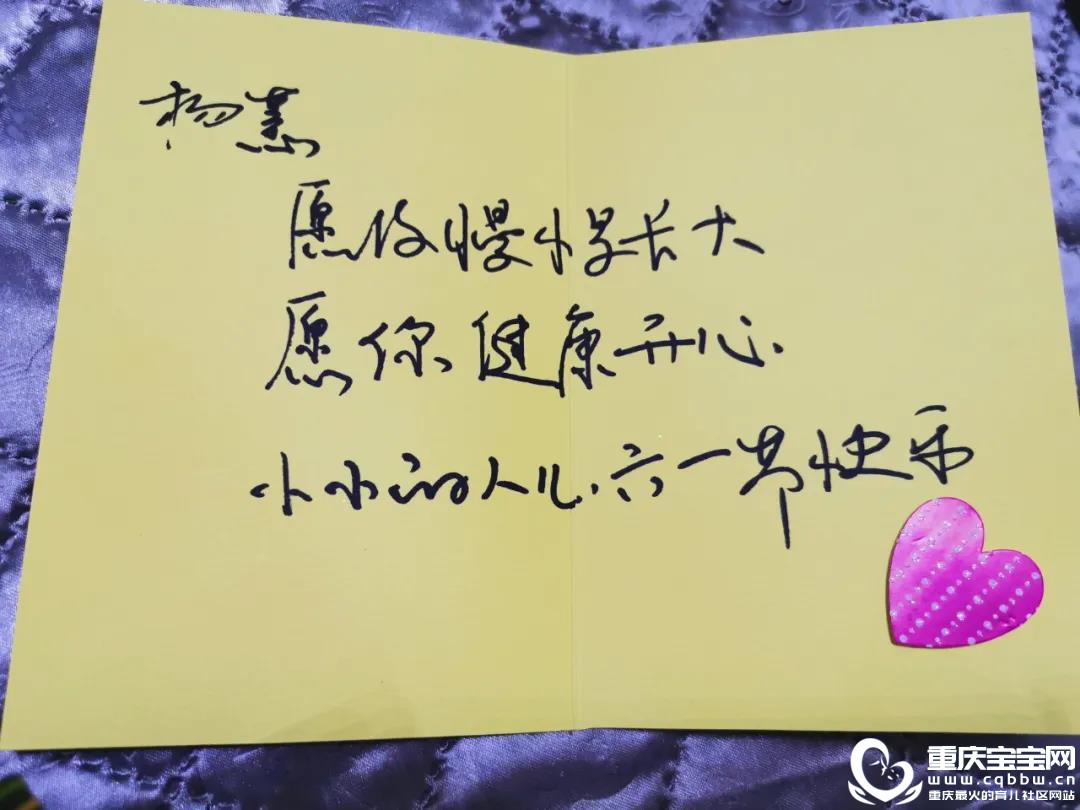 杨
愿你慢慢长大
愿你健康开心.
小小的人儿.六一节快乐
重庆宝宝网
www.cqbbw.cn
重庆最火的育儿社区网站